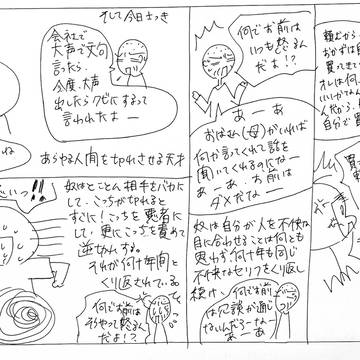 頼だから
おかずは自
買ってきてい
オレは何
いいかげんな
人だから、
自分で買
買っ
何でお前は
いつも怒るん
だよ!?
あーあ
おばさん(母)がいれば
何か言ってくれて話を
聞いてくれるのになー
あーあ、お前は
ダメだなー
奴は自分が人を不快な
目に合わせることは何とも
思わず何十年も同じ
不快なセリフをくり返し
続け、
何でお前
は冗談が通じ
ないんだろーなー
あーあ
そして今日さっき
会社で
大声で文句
言ったら、
今度、大声
出したらクビにするって
言われたよー
あらゆる人間を切れさせる天才
ね
奴はとことん相手をバカに
して、こっちが切れると
すぐにこっちを悪者に
して、更にこっちを責めて
逆切れする。
それが何十年間と
くり返されている。
何でお前は
そうやって怒るん
だよ!?
いつ!!